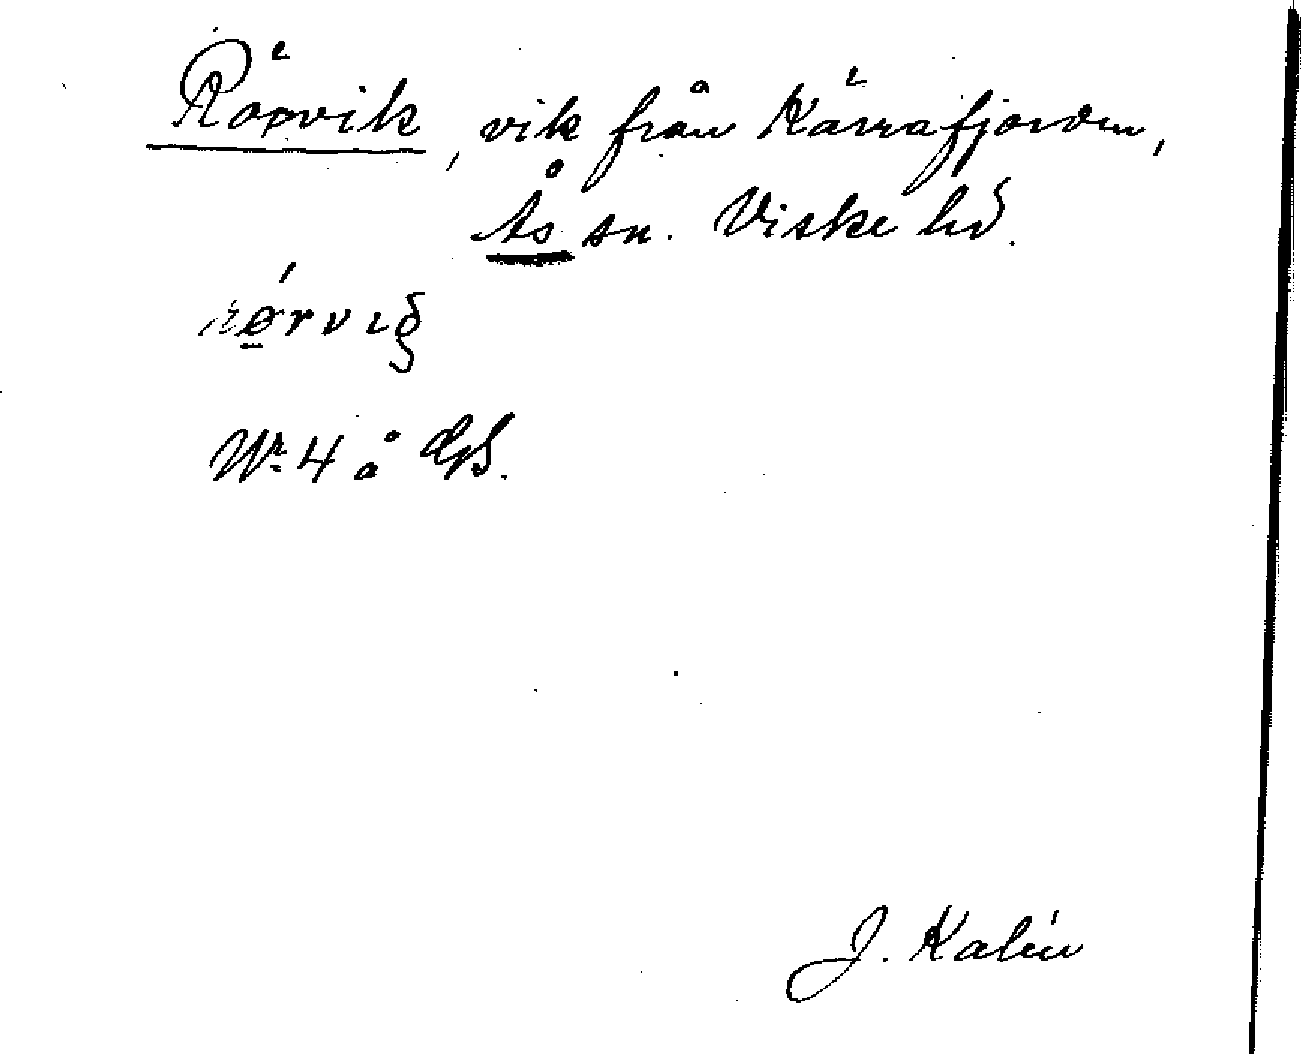 Rörvik, vik från Kärrafjorden,
Ås sn. Viske hd.
Nr 4 å
J. Kalén